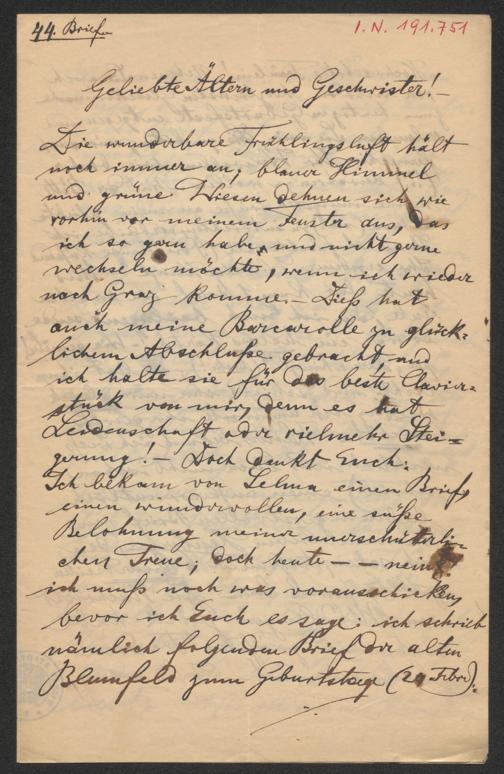 44. Brief.
I. N. 191.751
Geliebte Ältern und Geschwister! –
Die wunderbare Frühlingsluft hält
noch immer an; blauer Himmel
und grüne Wiesen dehnen sich wie
vorhin vor meinem Fenster aus, das
ich so gern habe, und nicht gerne
wechseln möchte, wenn ich wieder
nach Graz komme. – Dieß hat
auch meine Barcarolle zu glück-
lichem Abschluße gebracht, und
ich halte sie für das beste Clavier-
stück von mir, denn es hat
Leidenschaft oder vielmehr Stei-
gerung! – Doch denkt Euch:
Ich bekam von Selma einen Brief,
einen wundervollen, eine süße
Belohnung meiner unerschütterli-
chen Treue; doch heute – – nein,
ich muß noch was vorausschicken,
bevor ich Euch es sage: ich schrieb
nämlich folgenden Brief der alten
Blumfeld zum Geburtstage (Febr.).